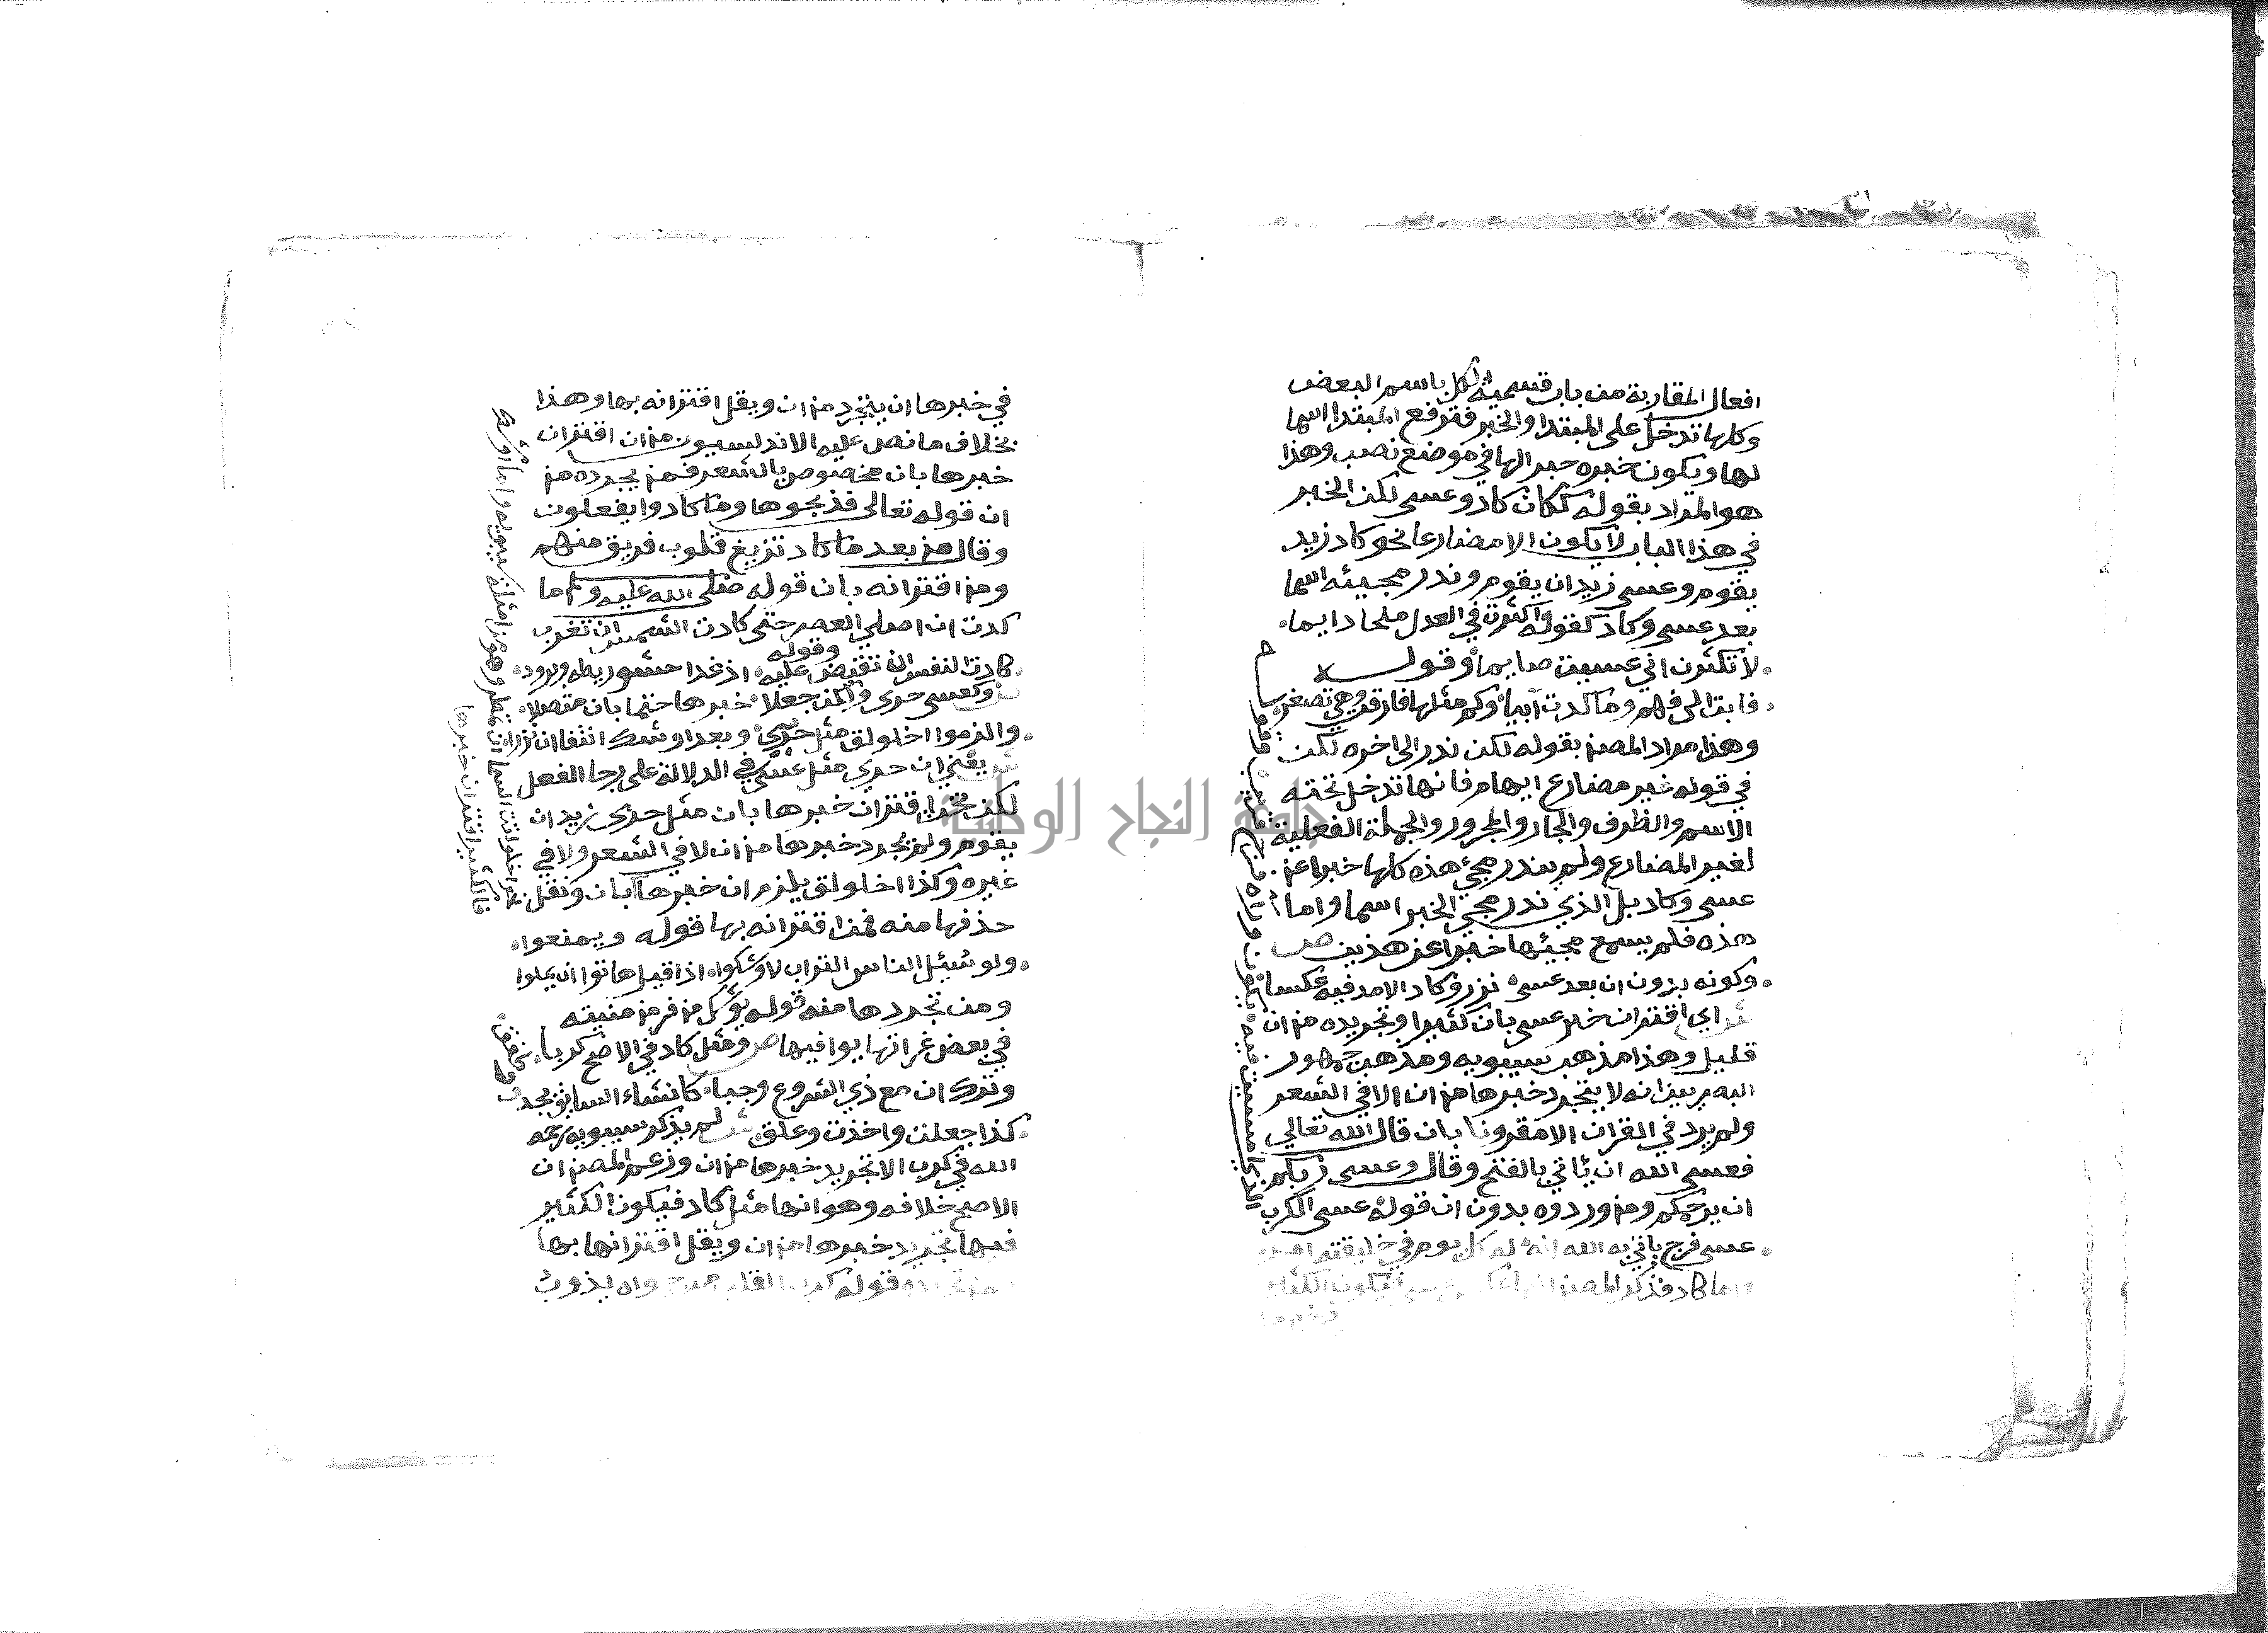 افعال المقاربة من باب تسمية الكل باسم البعض
وكلها تدخل على المبتدا والخبر فترفع المبتدا اسما
لها ويكون خبره خبرا لها في موضع نصب وهذا
هو المراد بقوله ككان كاد وعسى لكن الخبر
في هذا الباب لا يكون الا مضارعا نحو كاد زيد
يقوم وعسى زيد ان يقوم وندر مجيئه اسما
بعد عسى وكاد كقوله اكثرت في العدل ملحا دايما
لا تكثرن اني عسيت صايما وقوله
فابت الى فهم وما كدت آيبا وكم مثلها فارقتها وهي تصفر
وهذا مراد المصنف بقوله لكن ندر الى اخره لكن
في قوله غير مضارع ايهام فانها تدخل تحته
الاسم والظرف والجار والمجرور والجملة الفعلية
لغير المضارع ولم يندر مجئ هذه كلها خبرا عن
عسى وكاد بل الذي ندر مجي الخبر اسما واما
هذه فلم يسمع مجيئها خبرا عن هذين ص
وكونه بدون ان بعد عسى نزر وكاد الامر فيه عكسا
ش اي اقتران خبر عسى بان كثير وتجريده من ان
قليل وهذا مذهب سيبويه ومذهب جمهور
البصريين انه لا يتجرد خبرها من ان الا في الشعر
ولم يرد في القران الا مقرونا بان قال الله تعالي
فعسى الله ان ياتي بالفتح وقال وعسى ربكم
ان يرحمكم ومن وروده بدون ان قوله عسى الكرب
عسى فرج ياتي به الله انه له كل يوم في خليقته امر
واما كاد فذكر المصنف انها عكس عسى فيكون الكثير
في خبرها ان يتجرد من ان ويقل اقترانه بها وهذا
بخلاف ما نص عليه الاندلسيون من ان اقتران
خبرها بان مخصوص بالشعر فمن تجرده من
ان قوله تعالى فذبحوها وما كادوا يفعلون
وقال من بعد ما كاد تزيغ قلوب فريق منهم
ومن اقترانه بان قوله صلى الله عليه وسلم ما
كدت ان اصلي العصر حتى كادت الشمس ان تغرب
وقوله
كادت النفس ان تفيض عليه اذ غدا حشو ريطة وبرود
وكعسى حرى ولكن جعلا خبرها حتما بان متصلا
والزموا اخلولق ان مثل حرى وبعد اوشك انتفا ان نزرا
ش يعني ان حرى مثل عسى في الدلالة على رجا الفعل
لكن يجب اقتران خبرها بان مثل حرى زيد ان
يقوم ولم يجرد خبرها من ان لا في الشعر ولا في
غيره وكذا اخلولق يلزم ان خبرها بان ونقل
حذفها منه فمن اقترانه بها قوله ويمنعوا
ولو سئل الناس التراب لاوشكوا اذا قيل هاتوا ان يملوا
ومن تجردها منه قوله يوشك من فر من منيته
في بعض غراته يوافيها ص ومثل كاد في الاصح كربا
وترك ان مع ذي الشروع وجبا كانشاء السايق يحدو
كذا جعلت واخذت وعلق ش لم يذكر سيبويه رحمه
الله في كرب الا تجريد خبرها من ان وزعم المصنف ان
الاصح خلافه وهو انها مثل كاد فيكون الكثير
فيها تجريد خبرها من ان ويقل اقترانها بها
فمن تجريده قوله كرب القلب من جواه يذوب
جامعة النجاح الوطنية